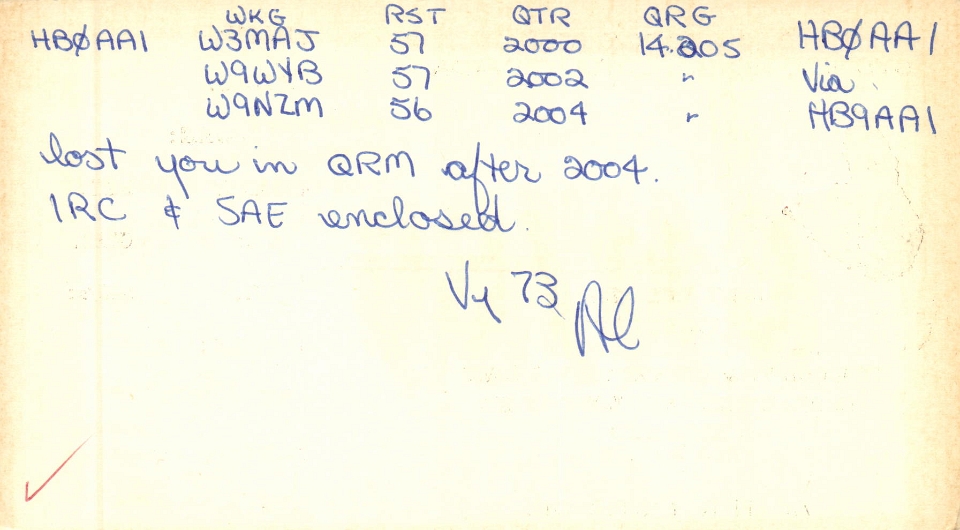 WKG RST QTR QRG
HBØAA1 W3MAJ 57 2000 14.205 HBØAA1
W9WYB 57 2002 " Via
W9NZM 56 2004 " HB9AA1
lost you in QRM after 2004.
IRC & SAE enclosed.
Vy 73 Al